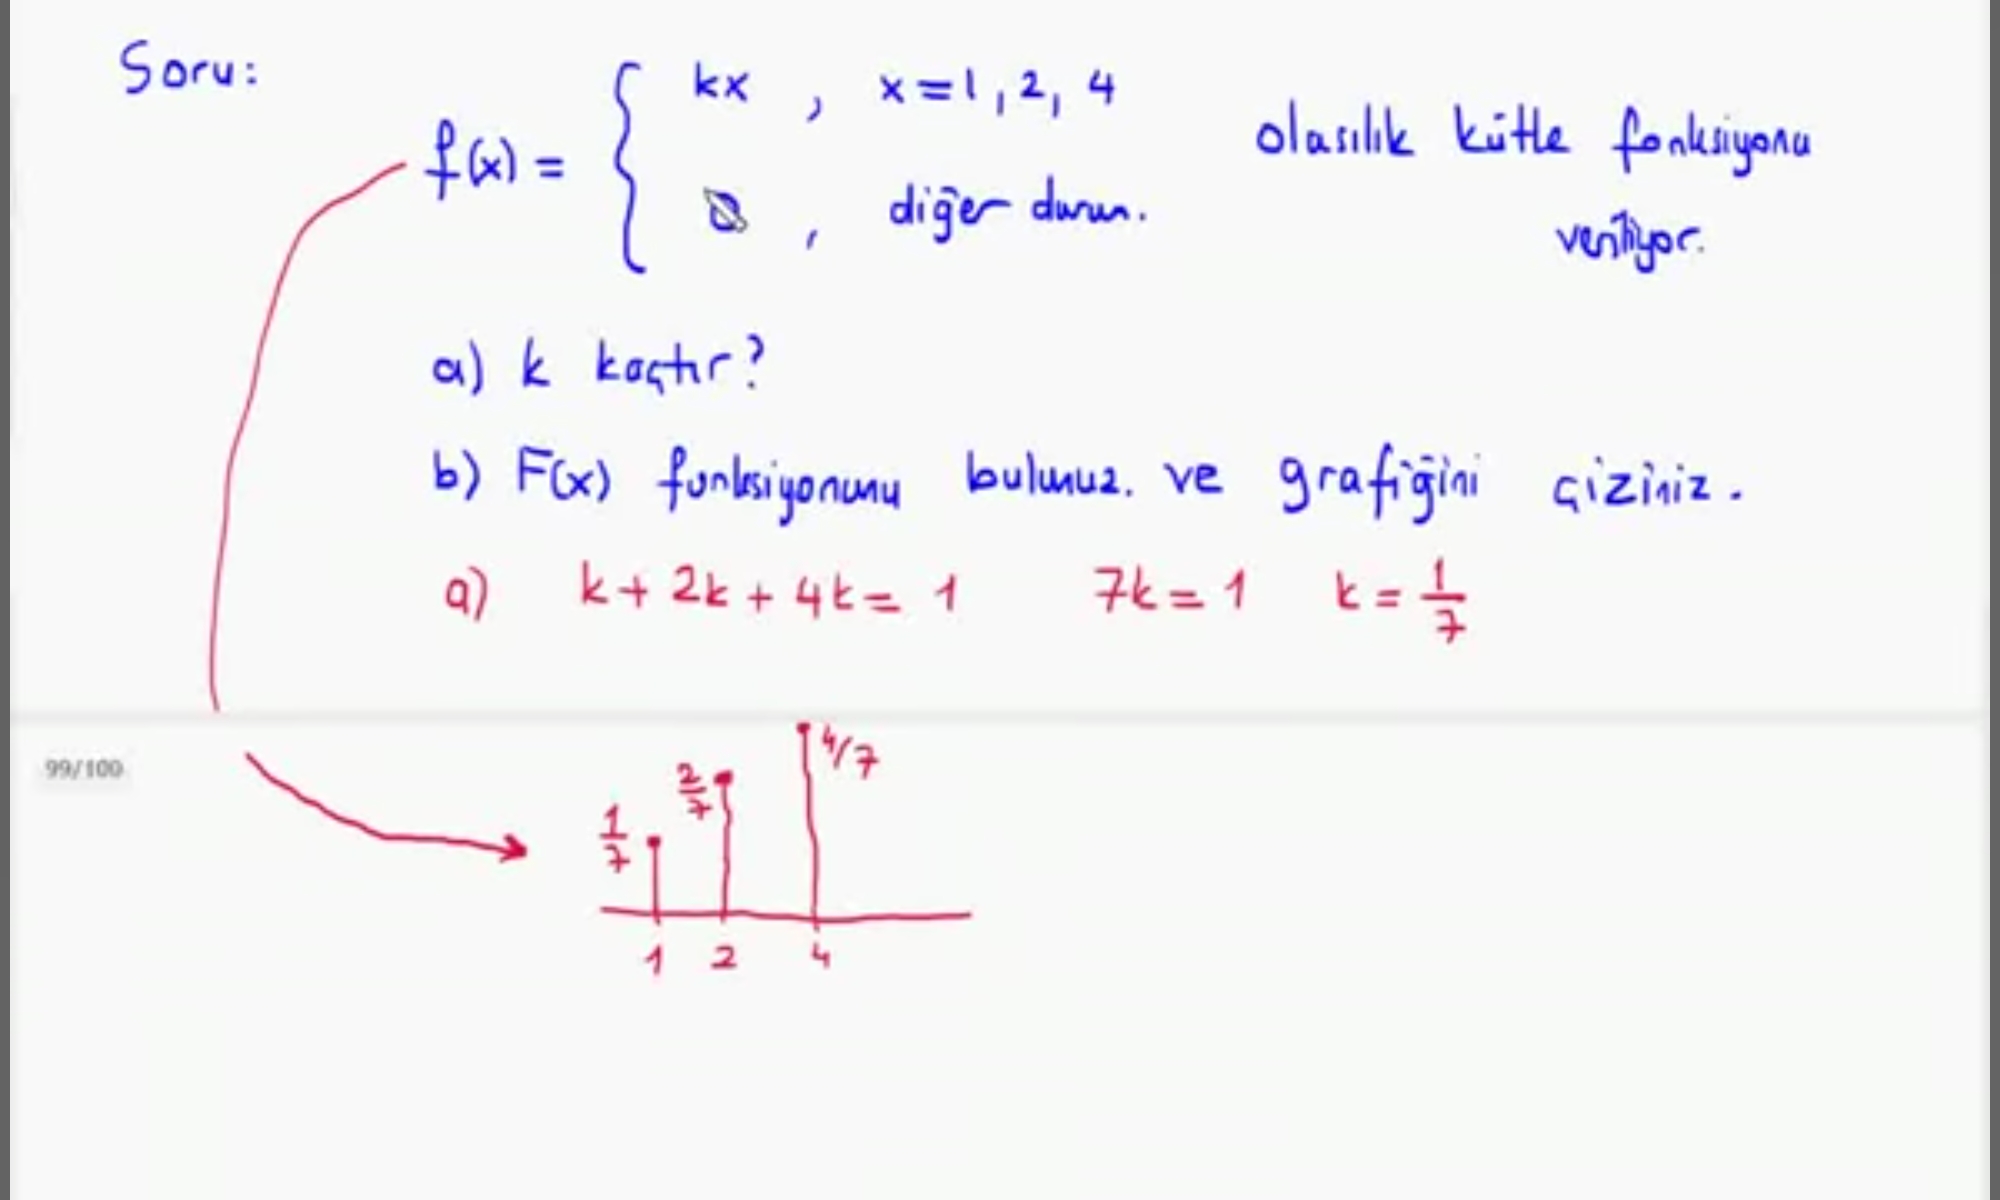 Soru:
f(x) = { kx , x = 1, 2, 4
0 , diğer durum.
olasılık kütle fonksiyonu
veriliyor.
a) k kaçtır?
b) F(x) fonksiyonunu bulunuz. ve grafiğini çiziniz.
a) k + 2k + 4k = 1 7k = 1 k = 1/7
99/100
1/7 2/7 4/7
1 2 4